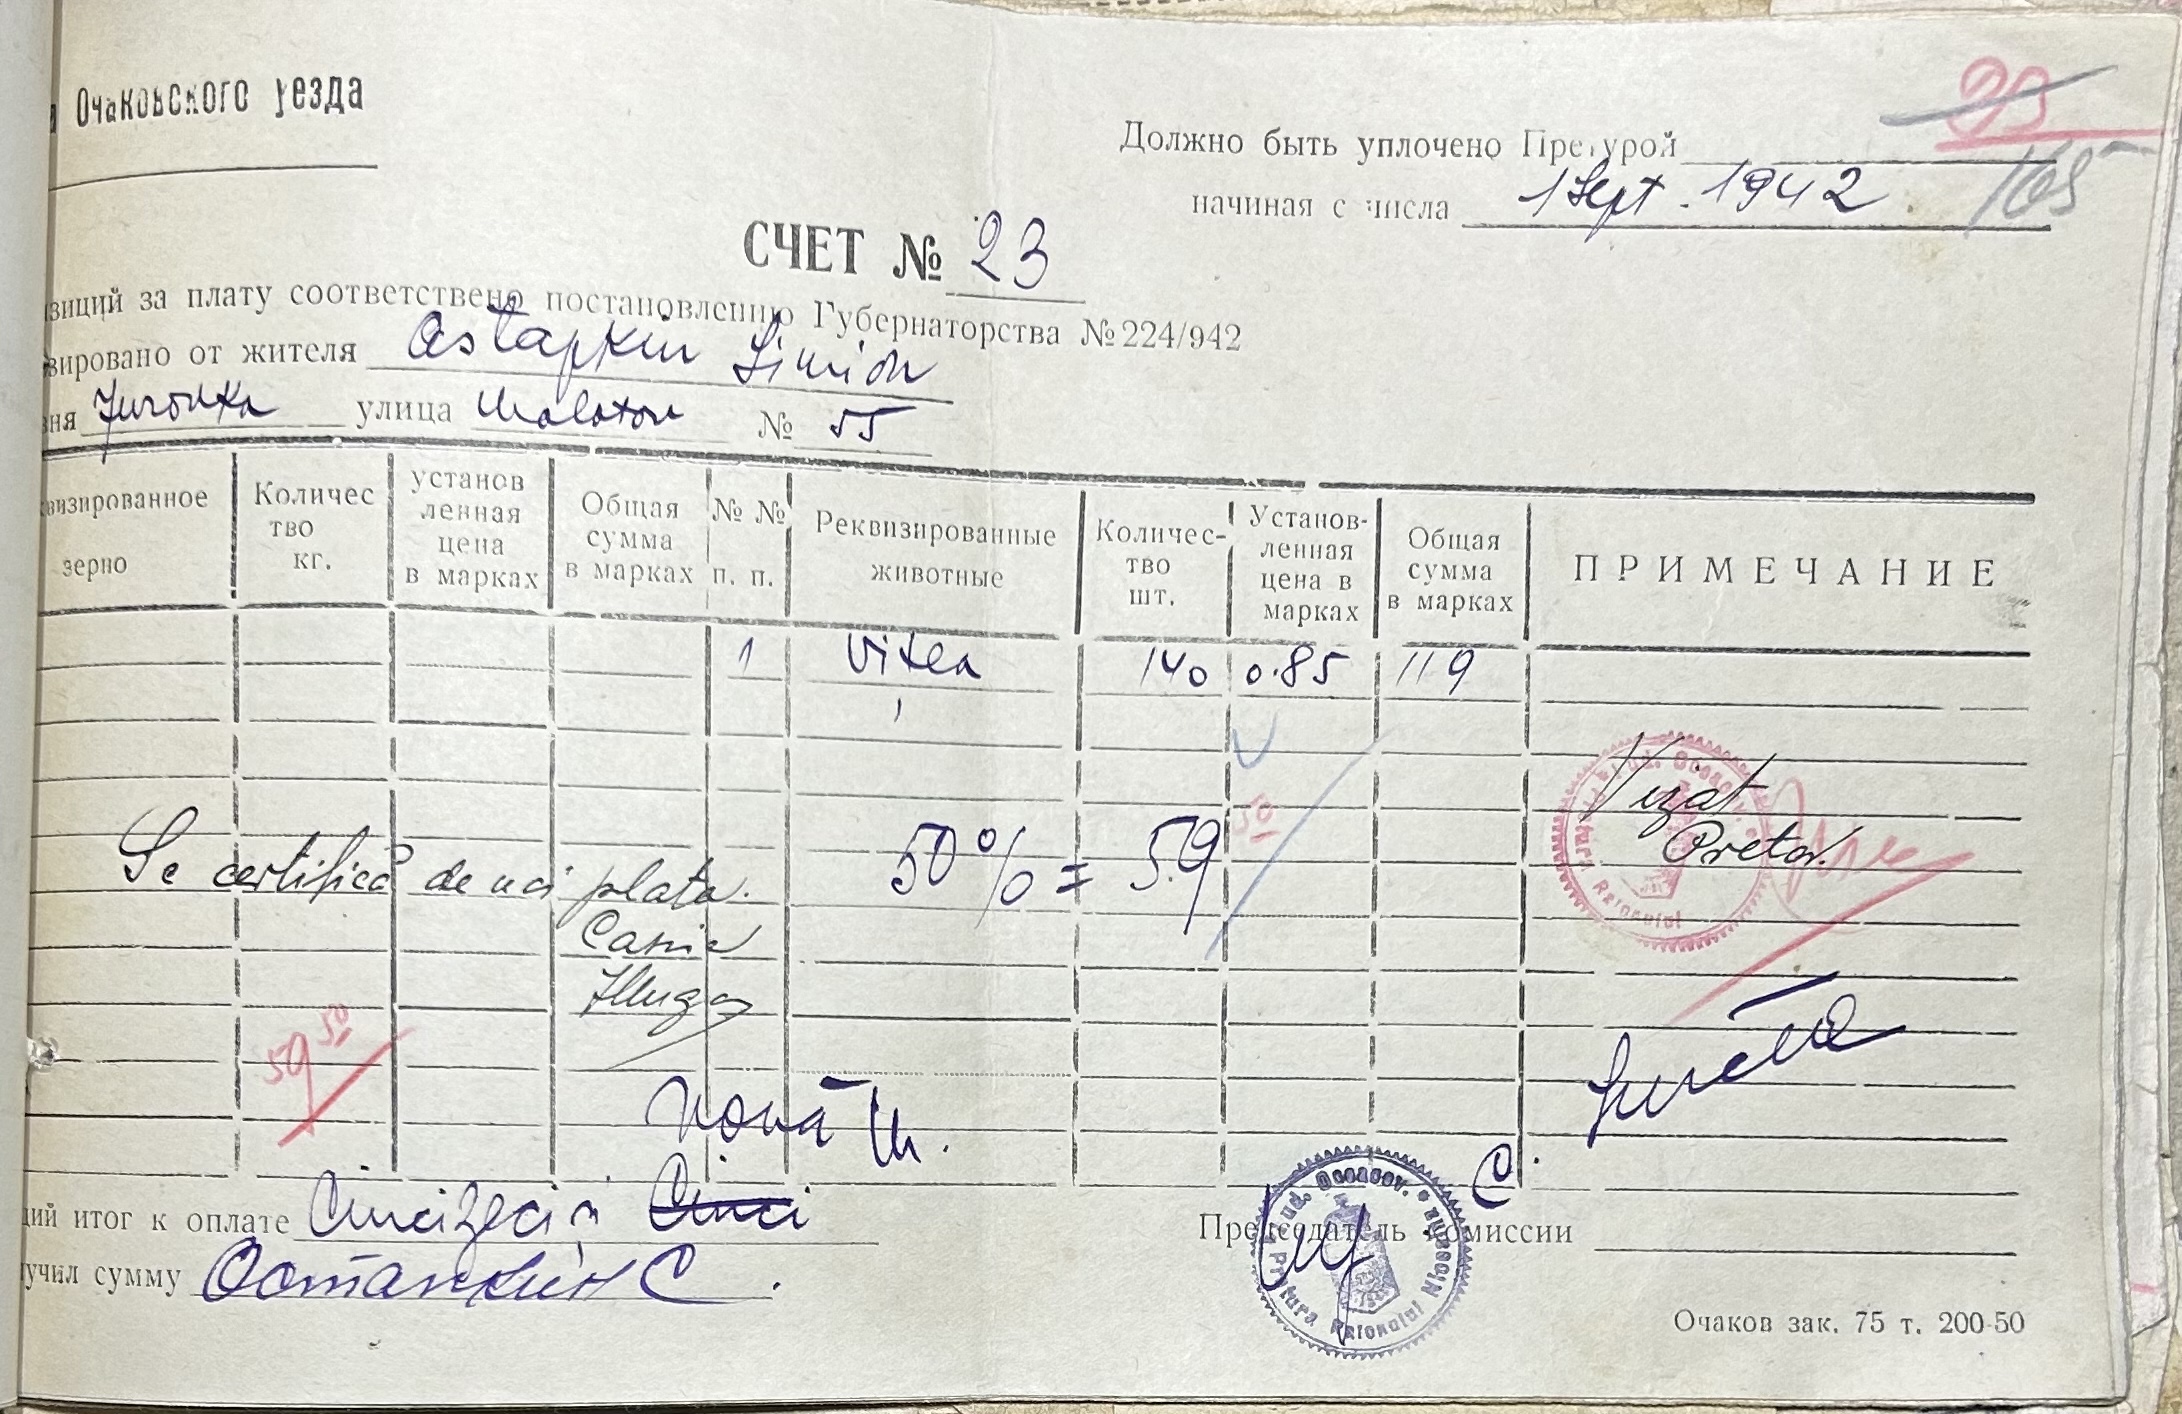 Очаковского уезда
23
Должно быть уплочено Претурой
начиная с числа 1 Sept. 1942
165
СЧЕТ № 23
зиций за плату соответствено постановлению Губернаторства № 224/942
зировано от жителя Astapkin Simion
вня улица № 55
визированное зерно
Количес тво кг.
установ ленная цена в марках
Общая сумма в марках
№ № п. п.
Реквизированные животные
Количес- тво шт.
Установ- ленная цена в марках
Общая сумма в марках
ПРИМЕЧАНИЕ
1 Vitea 140 0.85 119
Vizat
Pretor
50% = 59 50
Se certifică de noi plata.
Casier
59 50
Nouă M.
щий итог к оплате Cincizeci și Cinci
Председатель комиссии
учил сумму Остапкин С.
Pretura Raionului Nicoemie Jud. Oceacov.
Очаков зак. 75 т. 200-50